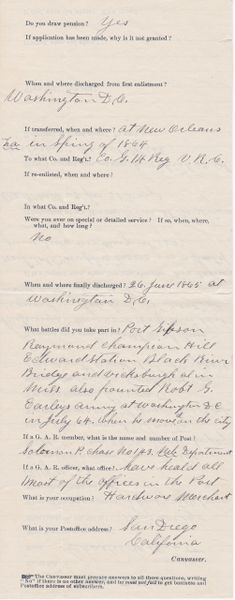 Do you draw pension? Yes
If application has been made, why is it not granted?
When and where discharged from first enlistment?
Washington D.C.
If transferred, when and where? at New Orleans
La in Spring of 1864
To what Co. and Reg't.? Co. G. 1st Reg V.R.C.
If re-enlisted, when and where?
In what Co. and Reg't.?
Were you ever on special or detailed service? If so, when, where,
what, and how long?
No
When and where finally discharged? 26 June 1865 at
Washington D.C.
What battles did you take part in? Port Gibson
Raymond Champian Hill
Edward Station Black River
Bridge and Vicksburgh al in
Miss. also Robt G.
Earleys army at Washington D C
in July 64. when he on the city
If a G. A. R. member, what is the name and number of Post?
Solomon P. Chase No 143. Department
If a G. A. R. officer, what office? have heald all
most of the offices in the Post
What is your occupation? Hardware Merchant
What is your Postoffice address? San Diego
California
Canvasser.
The Canvasser must procure answers to all these questions, writing
"No" if there is no other answer, and he must not fail to get business and
Postoffice address of subscribers.